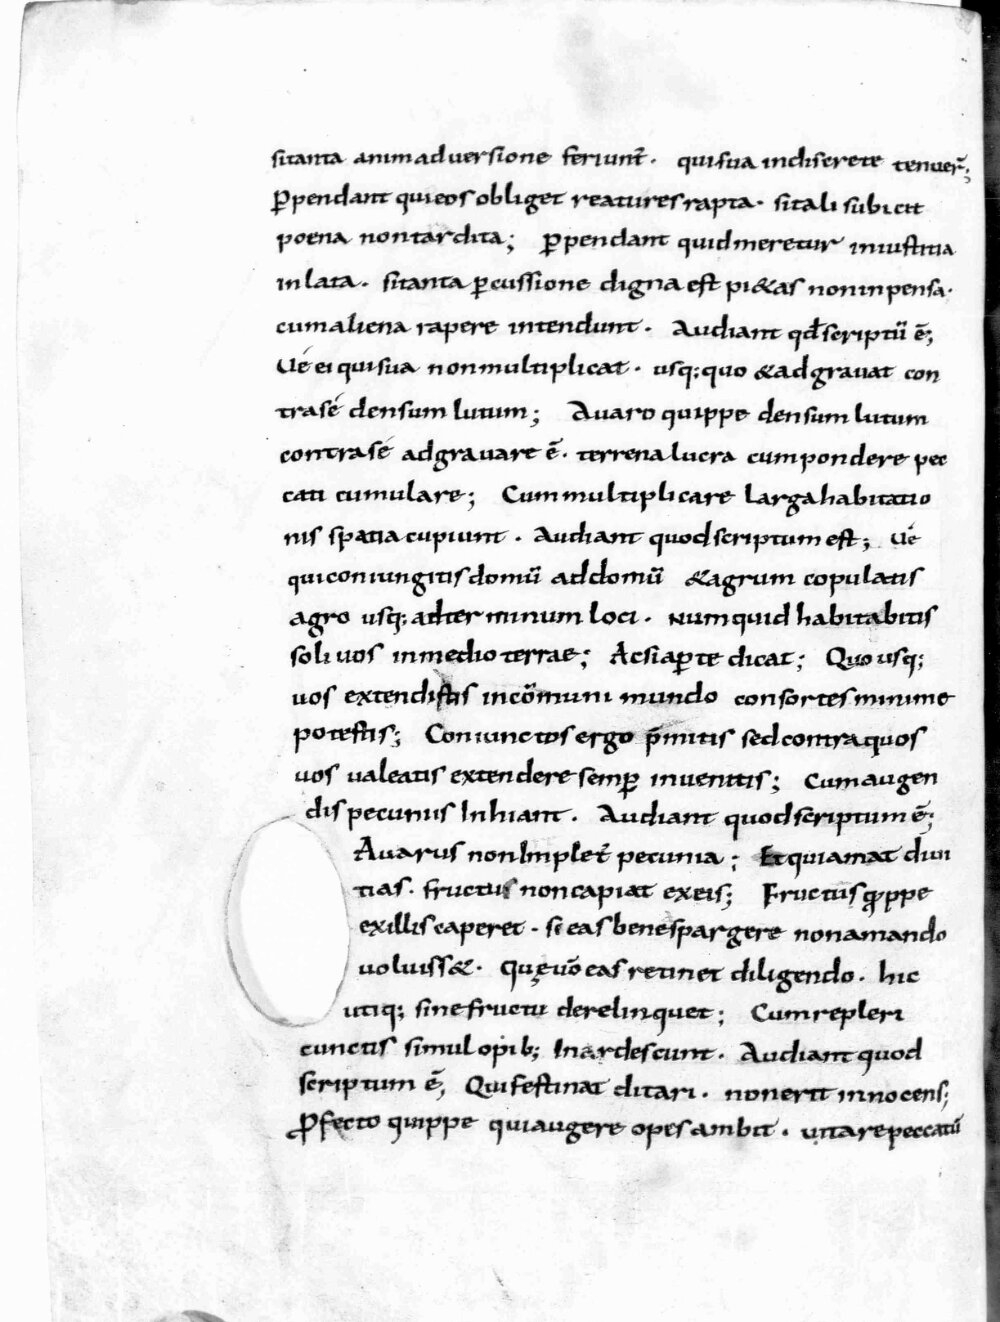 sitanta animadversione feriunt̄. quisua indiscrete tenuer̄;
P̱pendant quieos obliget reatuṡres rapta. sitali subicit
poena nontardita; ꝑpendant quidmeretur iniustitia
inlata. sitanta ꝑcussione digna est pi&as noninpensa.
cumaliena rapere intendunt. Audiant qđscriptū ē;
Ué ei quisua nonmultiplicat. usq;quo &adgrauat con
trasé densum lutum; Auaro quippe densum lutum
contrasé adgrauare ē. terrenalucra cumpondere pec
cati cumulare; Cummultiplicare largahabitatio
nis spatiacupiunt. Audiant quodscriptum est; Ué
quiconiungitisdomū addomū &agrum copulatis
agro usq;adterminum loci. Numquid habitabitis
soliuos inmedioterrae; Acsiaꝑte dicat; Quousq;
uos extenditis incōmuni mundo consortes minime
potestis; Coniunctos ergo p̄mitis sedcontraquos
uos ualeatis extendere semꝑ inuenitis; Cumaugen
dis pecuniis Inhiant. Audiant quodscriptum ē;
Auarus nonImplet̄ pecunia; Etquiamat diui
tias. fructus noncapiat exeis; Fructusqppe
exillis caperet. si eas benespargere nonamando
uoluiss&. Quęuōeas retinet diligendo. hic
utiq; sinefructu derelinquet; Cumrepleri
cunctis simul opib; Inardescunt. Audiant quod
scriptum ē; Quifestinat ditari. nonerit innocens;
Ꝓfecto quippe quiaugere opes ambit. uitarepeccatū